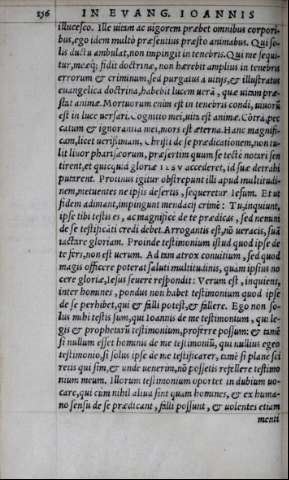 156 IN EVANG. IOANNIS
illucesco. Ille uitam ac uigorem præbet omnibus corpori-
bus, ego idem multò præsentius præsto animabus. Qui so-
lis ductu ambulat, non impingit in tenebris. Qui me sequi-
tur, meæq; fidit doctrinæ, non hærebit amplius in tenebris
errorum & criminum, sed purgatus a uitijs, & illustratus
euangelica doctrina, habebit lucem uerã, quæ uitam præ-
stat animæ. Mortuorum enim est in tenebris condi, uiuorũ
est in luce uersari. Cognitio mei, uita est animæ. Cõtrà, pec
catum & ignorantia mei, mors est æterna. Hanc magnifi-
cam, licet uerissimam, Christi de se prædicationem, non tu-
lit liuor pharisæorum, præsertim quum se tectè notari sen
tirent, et quicquid gloriæ accederet, id suæ detrahi
putarent. Protinus igitur obstrepunt illi apud multitudi-
nem, metuentes ne ipsis desertis, sequeretur Iesum. Et ut
fidem adimant, impingunt mendacij crimẽ: Tu, inquiunt,
ipse tibi testis es, ac magnificè de te prædicas, sed nemini
de se testificãti credi debet. Arrogantis est, nõ ueracis, suã
iactare gloriam. Proinde testimonium istud quod ipse de
te fers, non est uerum. Ad tam atrox conuitium, sed quod
magis officere poterat saluti multitudinis, quam ipsius no
cere gloriæ, Iesus seuere respondit: Verum est, inquient,
inter homines, pondus non habet testimonium quod ipse
de se perhibet, qui & falli potest, & fallere. Ego non so-
lus mihi testis sum, qui Ioannis de me testimonium, qui le-
gis & prophetarũ testimonium, proferre possum: & tamẽ
si nullum esset hominis de me testimoniũ, qui nullius egeo
testimonio, si solus ipse de me testificarer, tamẽ si plane sci
retis qui sim, & unde uenerim, nõ possetis refellere testimo
nium meum. Illorum testimonium oportet in dubium uo-
care, qui cum nihil aliud sint quam homines, & ex huma-
no sensu de se prædicant, falli possunt, & uolentes etiam
menti